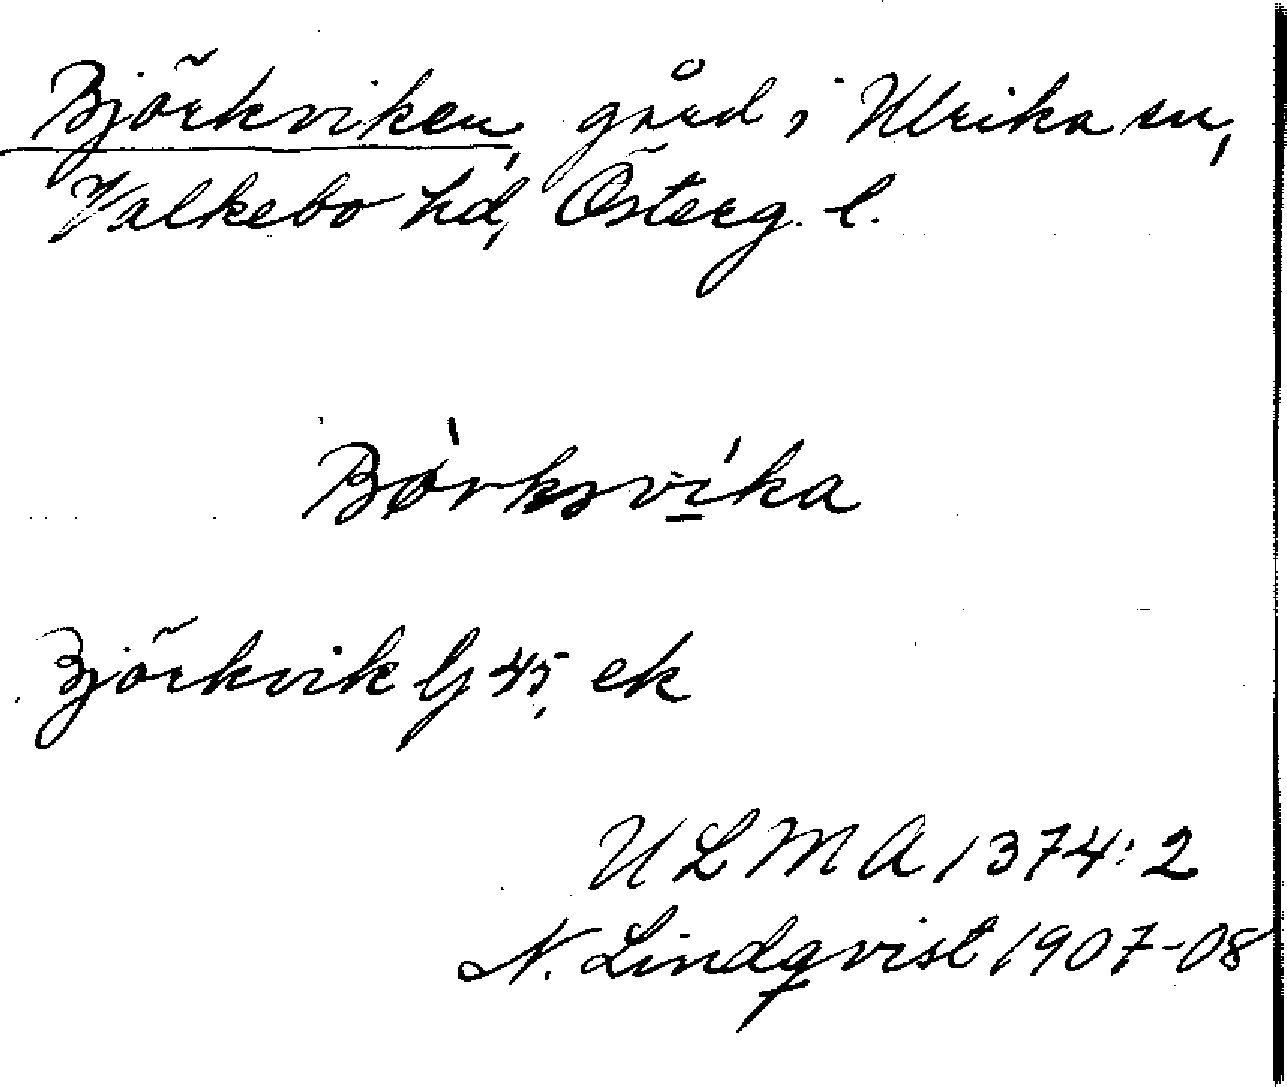 Björkviken, gård i Ulrika sn,
Valkebo hd, Österg. l.
Bø̀rksvíka
Björkvik G 45, ek
ULMA 1374:2
N. Lindqvist 1907-08